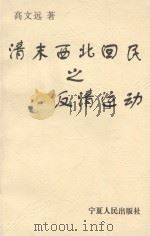 高文远 著
清末西北回民
之
反清运动
www.
.com
宁夏人民出版社